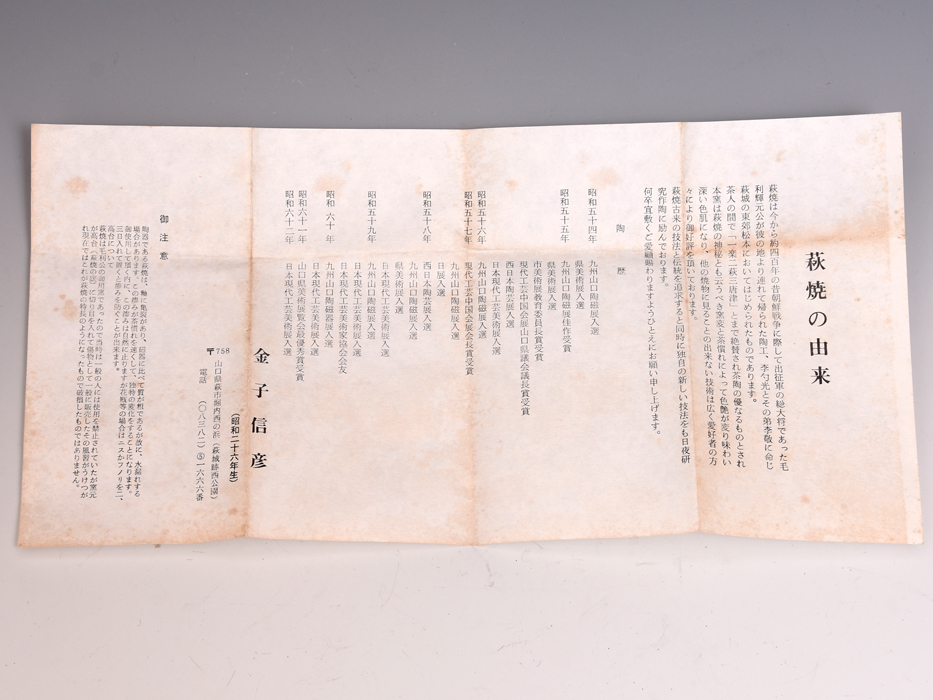 萩焼の由来
萩焼は今から約四百年の昔朝鮮戦争に際して出征軍の総大将であった毛
利輝元公が彼の地より連れて帰られた陶工、李勺光とその弟李敬に命じ
萩城の東郊松本においてはじめられたものであります。
茶人の間で「一楽二萩三唐津」とまで絶賛され茶陶の優なるものとされ
本窯は萩焼の神秘とも云うべき窯変と茶慣れによって色艶が変り味わい
深い色肌になり、他の焼物に見ることの出来ない技術は広く愛好者の方
々により御好評を頂いております。
萩焼古来の技法と伝統を追求すると同時に独自の新しい技法をも日夜研
究作陶に励んでおります。
何卒宜敷くご愛顧賜わりますようひとえにお願い申し上げます。
陶歴
昭和五十四年 九州山口陶磁展入選
県美術展入選
昭和五十五年 九州山口陶磁展佳作受賞
県美術展入選
市美術展教育委員長賞受賞
現代工芸中国会展山口県議会議長賞受賞
西日本陶芸展入選
日本現代工芸美術展入選
昭和五十六年 九州山口陶磁展入選
昭和五十七年 現代工芸中国会展会長賞受賞
九州山口陶磁展入選
日展入選
昭和五十八年 西日本陶芸展入選
九州山口陶磁展入選
県美術展入選
日本現代工芸美術展入選
昭和五十九年 九州山口陶磁展入選
日本現代工芸美術展入選
日本現代工芸美術家協会会友
昭和六十年 九州山口陶磁器展入選
日本現代工芸美術展入選
昭和六十一年 山口県美術展覧会最優秀賞受賞
昭和六十二年 日本現代工芸美術展入選
金子信彦
(昭和二十六年生)
〒758 山口県萩市堀内西の浜(萩城跡西公園)
電話 (〇八三八二)⑤一六六六番
御注意
陶器である萩焼は、釉に亀裂があり、磁器に比べて質が粗であるが故に、水漏れする
場合があります。この滲みが茶慣れを速くして、独特の変化をすることになります。
御使用して頂く内に、この滲みは自然に止りますが花瓶等の場合はニスかフノリを二、
三日入れて置くと滲みを防ぐことが出来ます。
高台について
萩焼は毛利公の御用窯であったので当時は一般の人には使用を禁止されていたが窯元
が高台(萩焼の底)に切り目を入れて傷物として一般に販売したその風習がうけつが
れ現在ではこれが萩焼の特長のようになったもので破損したものではありません。